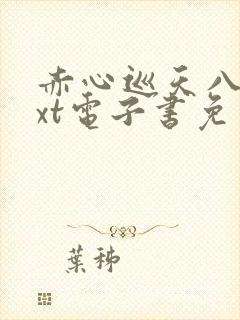 赤心巡天八
xt電子書免
葉秭